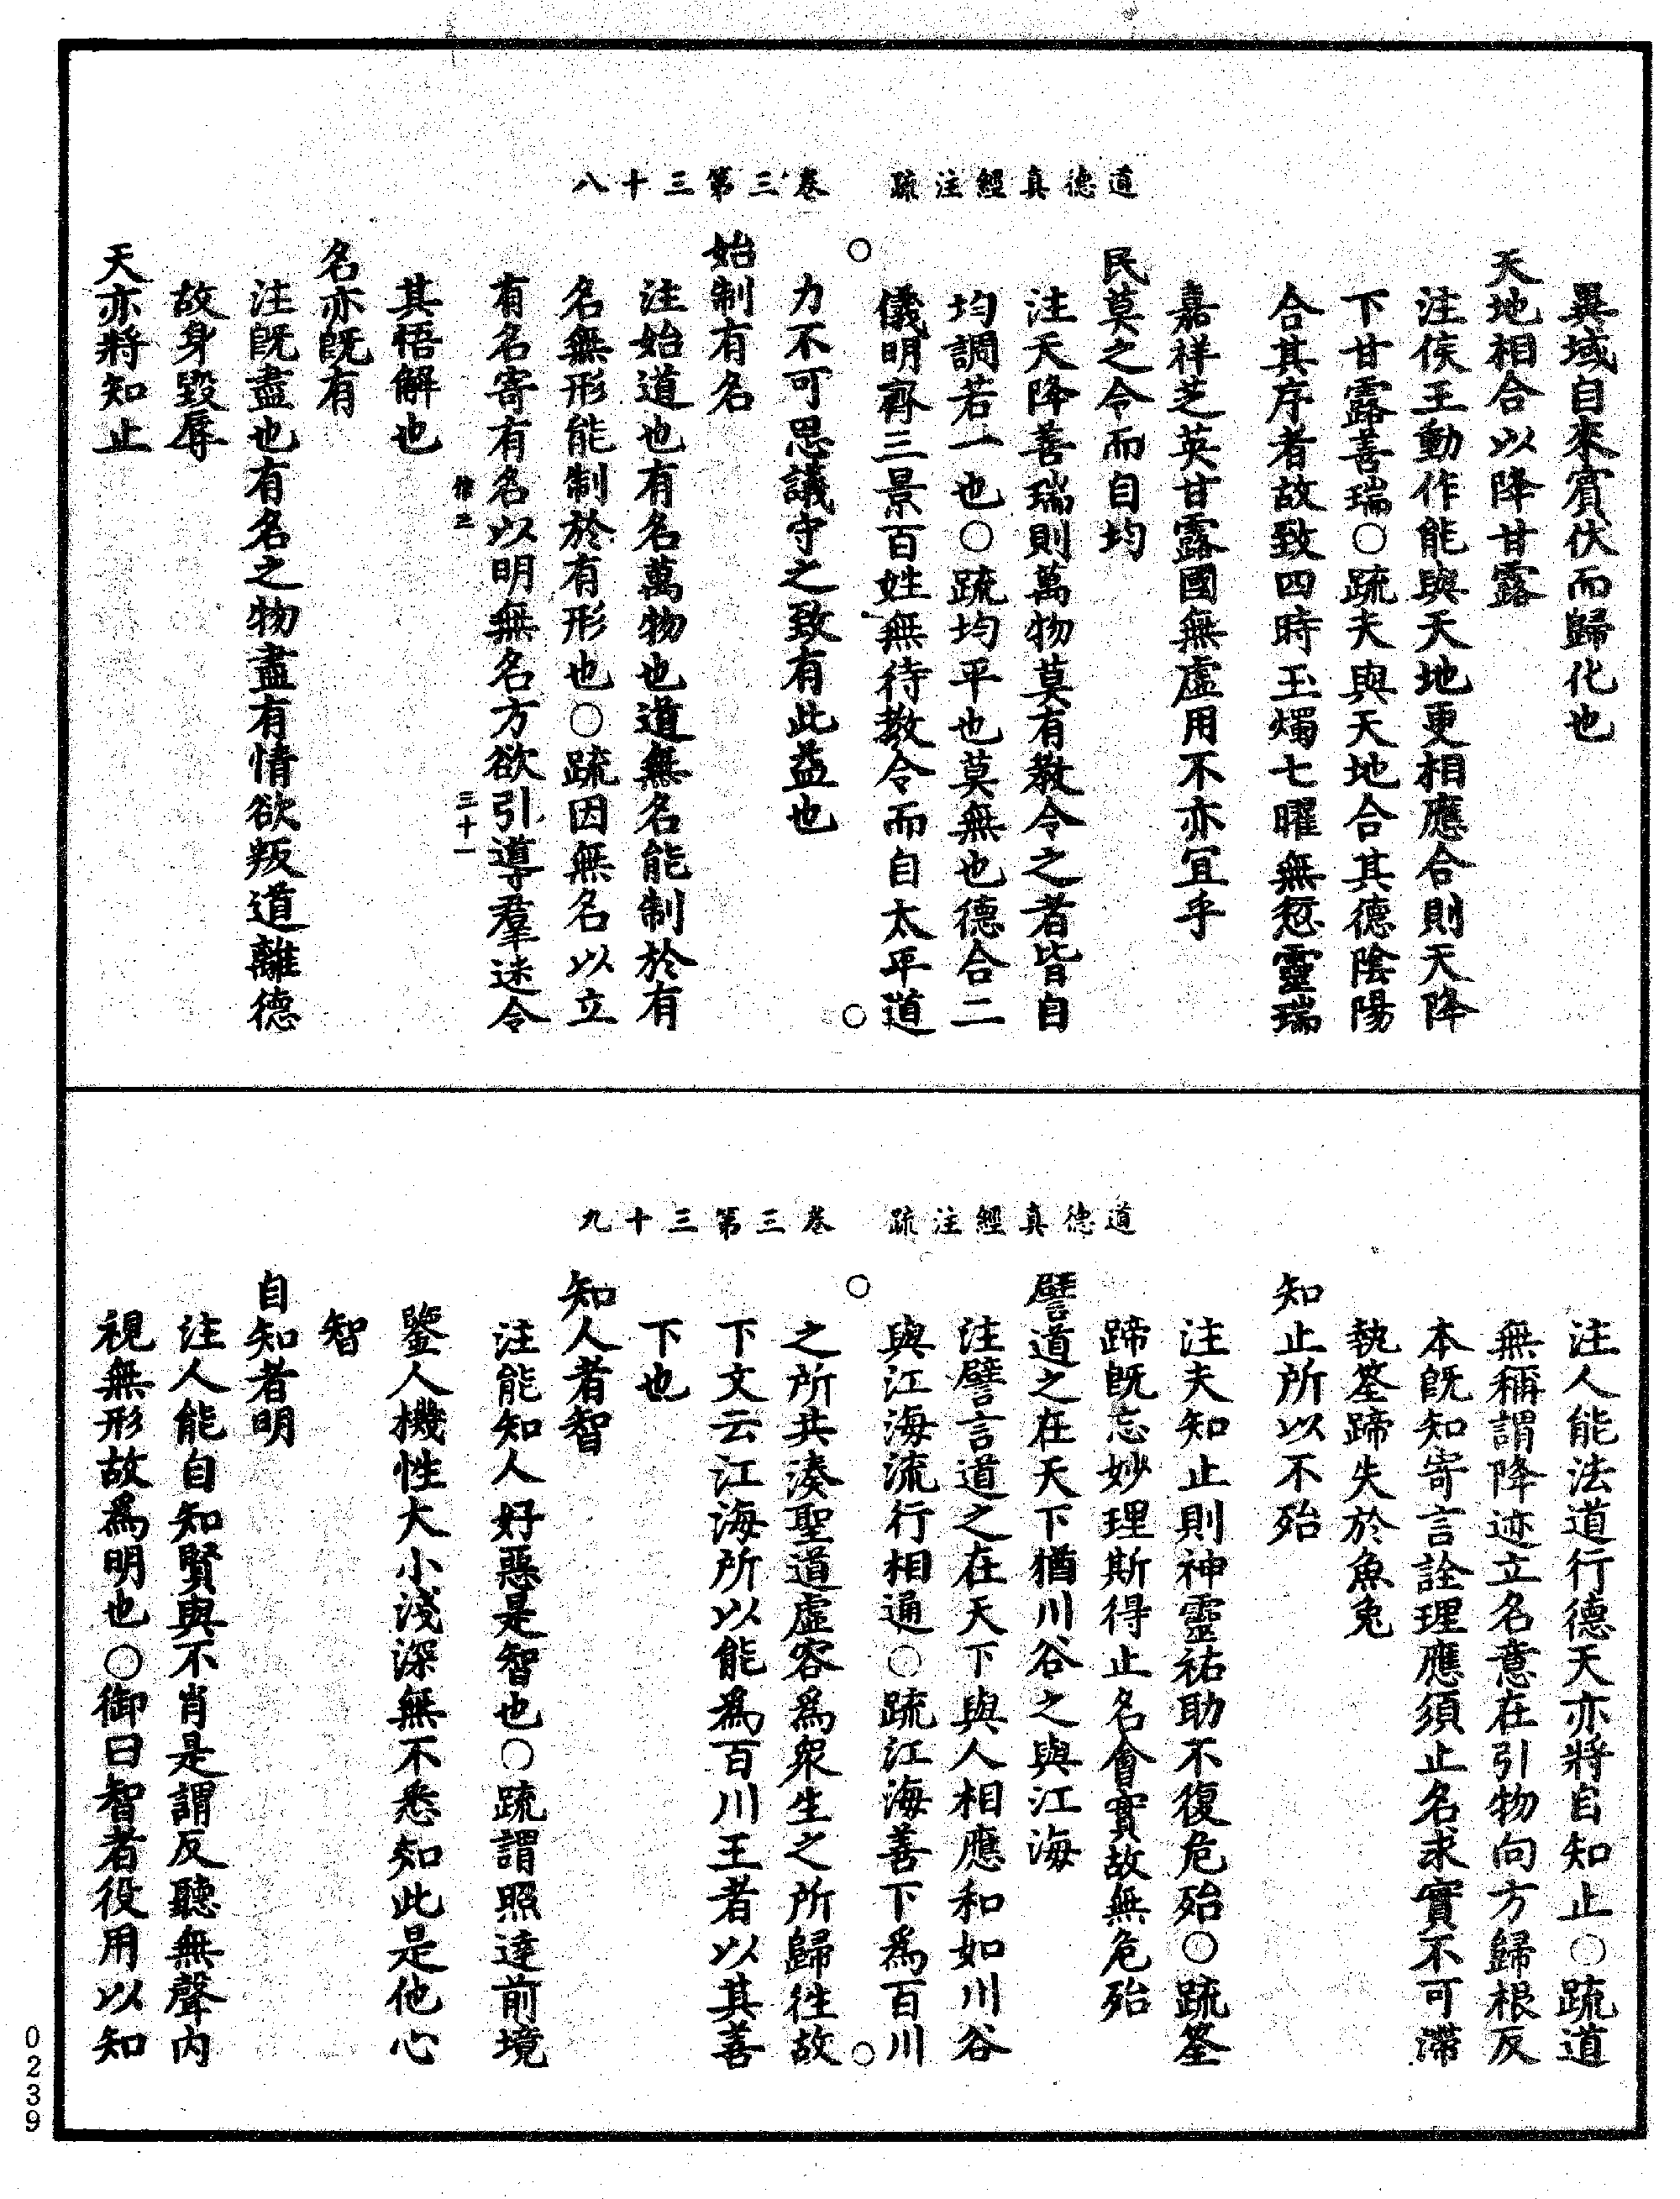 道德真經注疏　卷三第三十八
異域自來賓伏而歸化也
天地相合以降甘露
注侯王動作能與天地更相應合則天降
下甘露善瑞○疏夫與天地合其德陰陽
合其序者故致四時玉燭七曜無愆靈瑞
嘉祥芝英甘露國無虛用不亦宜乎
民莫之令而自均
注天降善瑞則萬物莫有教令之者皆自
均調若一也○疏均平也莫無也德合二
儀明齊三景百姓無待教令而自太平道
力不可思議守之致有此益也
始制有名
注始道也有名萬物也道無名能制於有
名無形能制於有形也○疏因無名以立
有名寄有名以明無名方欲引導羣迷令
三十一
其悟解也
名亦既有
注既盡也有名之物盡有情欲叛道離德
故身毀辱
天亦將知止
道德真經注疏　卷三第三十九
注人能法道行德天亦將自知止○疏道
無稱謂降迹立名意在引物向方歸根反
本既知寄言詮理應須止名求實不可滯
執筌蹄失於魚兔
知止所以不殆
注夫知止則神靈祐助不復危殆○疏筌
蹄既忘妙理斯得止名會實故無危殆
譬道之在天下猶川谷之與江海
注譬言道之在天下與人相應和如川谷
與江海流行相通○疏江海善下為百川
之所共湊聖道虛容為衆生之所歸往故
下文云江海所以能為百川王者以其善
下也
知人者智
注能知人好惡是智也○疏謂照達前境
鑒人機性大小淺深無不悉知此是他心
智
自知者明
注人能自知賢與不肖是謂反聽無聲內
視無形故為明也○御曰智者役用以知
0239